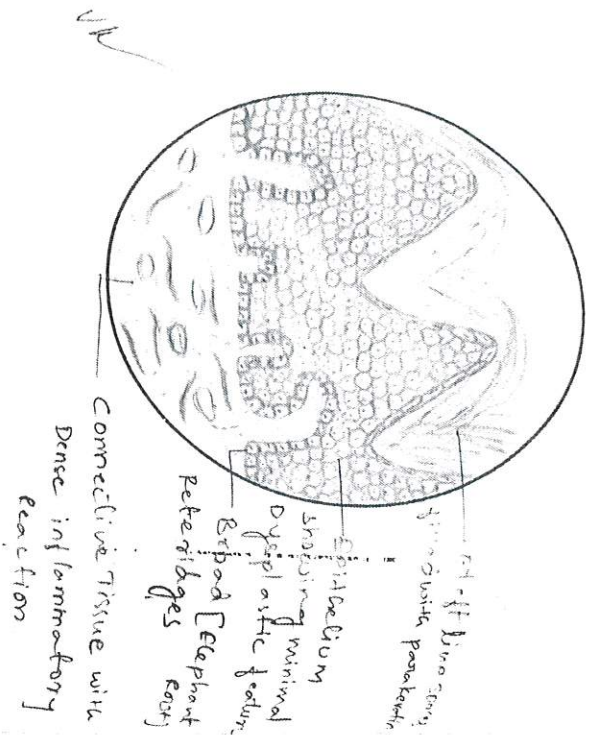 with parakeratin
Epithelium
showing minimal
Dysplastic features
Broad [Elephant
Reteridges foot]
Connective Tissue with
Dense inflammatory
Reaction